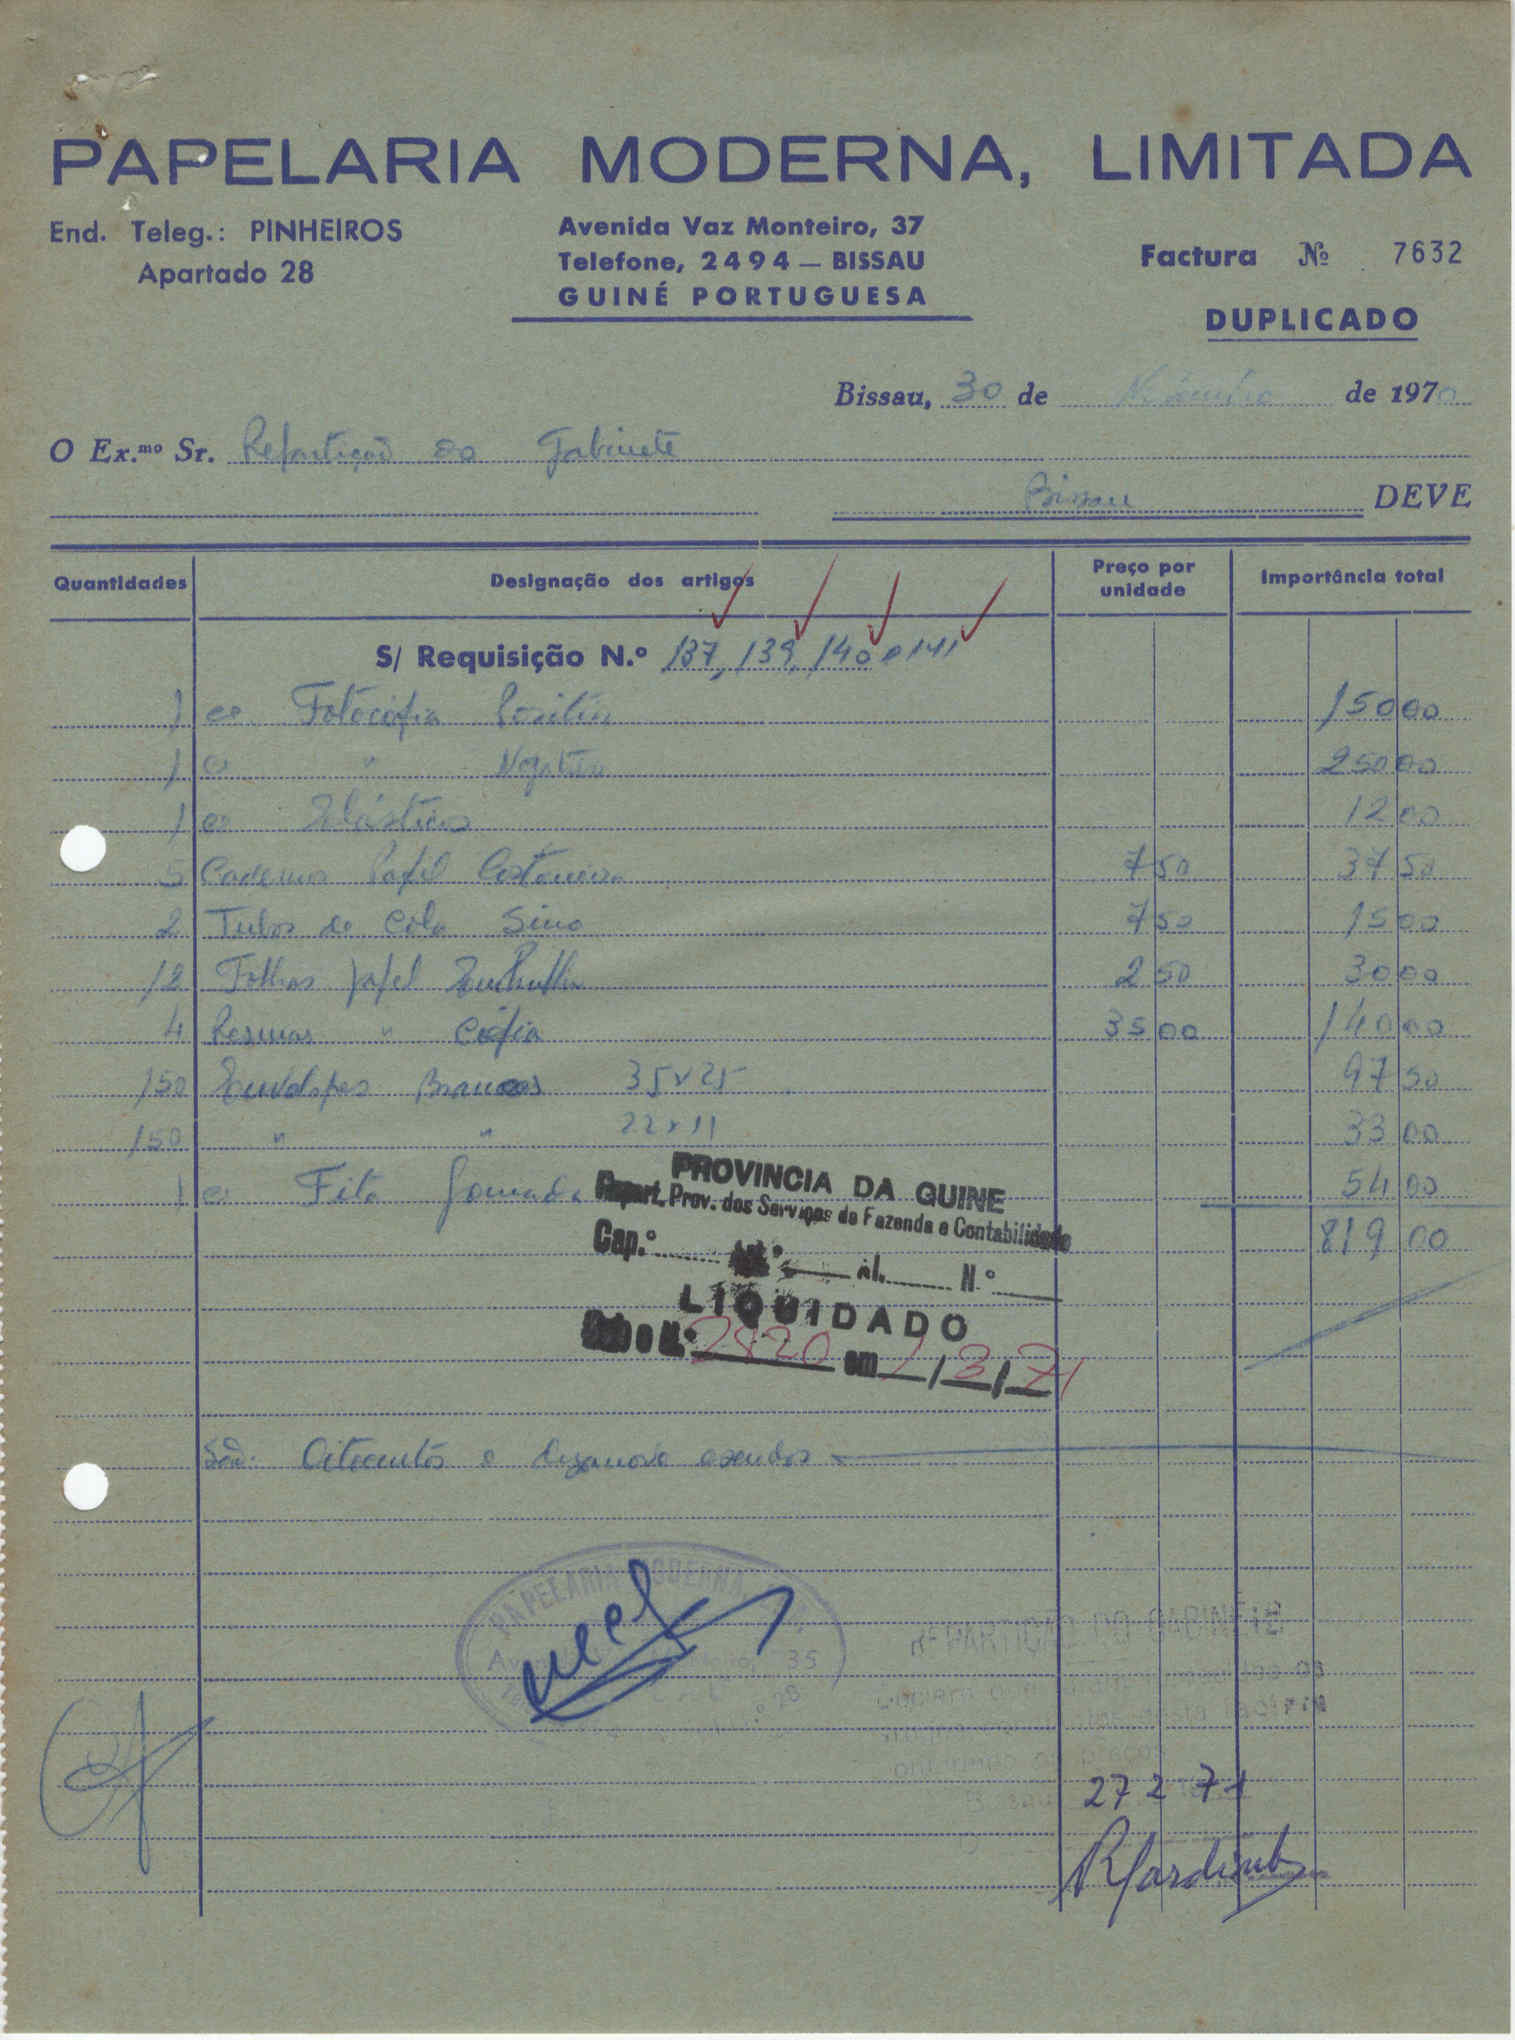 PAPELARIA MODERNA, LIMITADA
End. Teleg.: PINHEIROS
Apartado 28
Avenida Vaz Monteiro, 37
Telefone, 2494 — BISSAU
GUINÉ PORTUGUESA
Factura Nº 7632
DUPLICADO
Bissau, 30 de de 1970
O Ex.mo Sr. Repartição do Gabinete
Bissau DEVE
Quantidades Designação dos artigos Preço por unidade Importância total
S/ Requisição N.º 137, 139, 140 e 141
1 cx Fotocópia Positiva 150 00
1 cx " Negativa 250 00
1 cx Elásticos 12 00
5 Cadernos Papel Costaneira 7 50 37 50
2 Tubos de Cola Sino 7 50 15 00
12 Folhas papel 2 50 30 00
4 Resmas " Cópia 35 00 140 00
150 Envelopes Brancos 35x25 97 50
150 " " 22x11 33 00
1 cx Fita Gomada 54 00
819 00
PROVINCIA DA GUINE
Repart. Prov. dos Serviços de Fazenda e Contabilidade
Cap.º al. N.º
LIQUIDADO
2820 em 2/3/71
São: Oitocentos e dezanove escudos
PAPELARIA MODERNA,
35
REPARTIÇÃO DO GABINETE
27 2 71